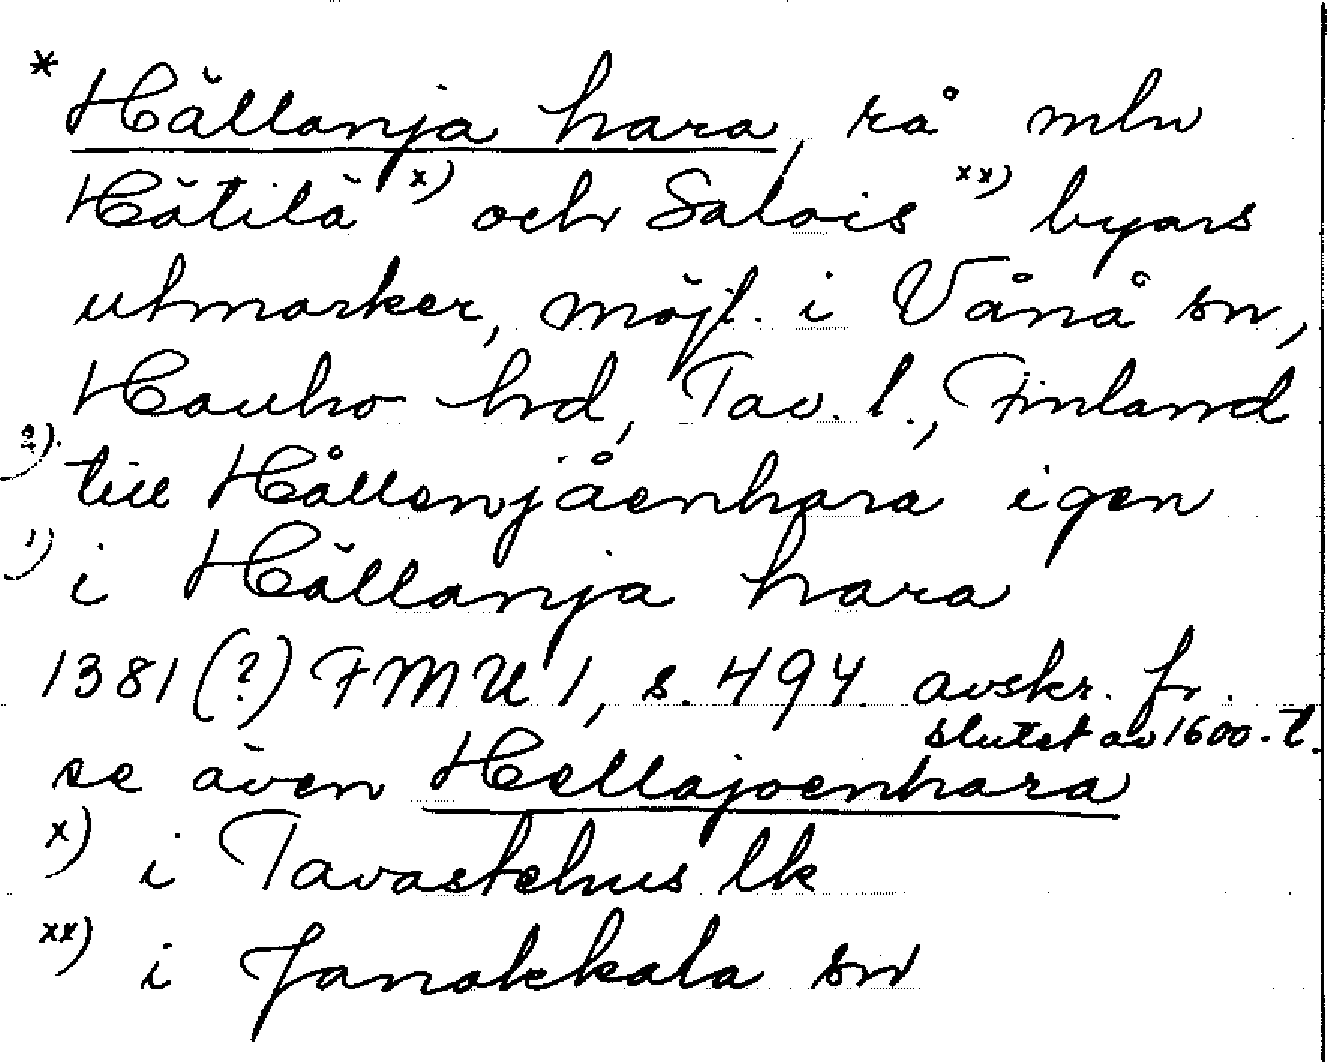 * Hällanja hara, rå mln
Hätilä x) och Salois xx) byars
utmarker, möjl. i Vånå sn,
Hauho hd, Tav. l., Finland
2). till Hållenjåenhara igen
1) i Hällanja hara
1381 (?) FMU 1, s. 494 avskr. fr.
slutet av 1600-t.
se även Hellajoenhara
x) i Tavastehus lk
xx) i Janakkala sn